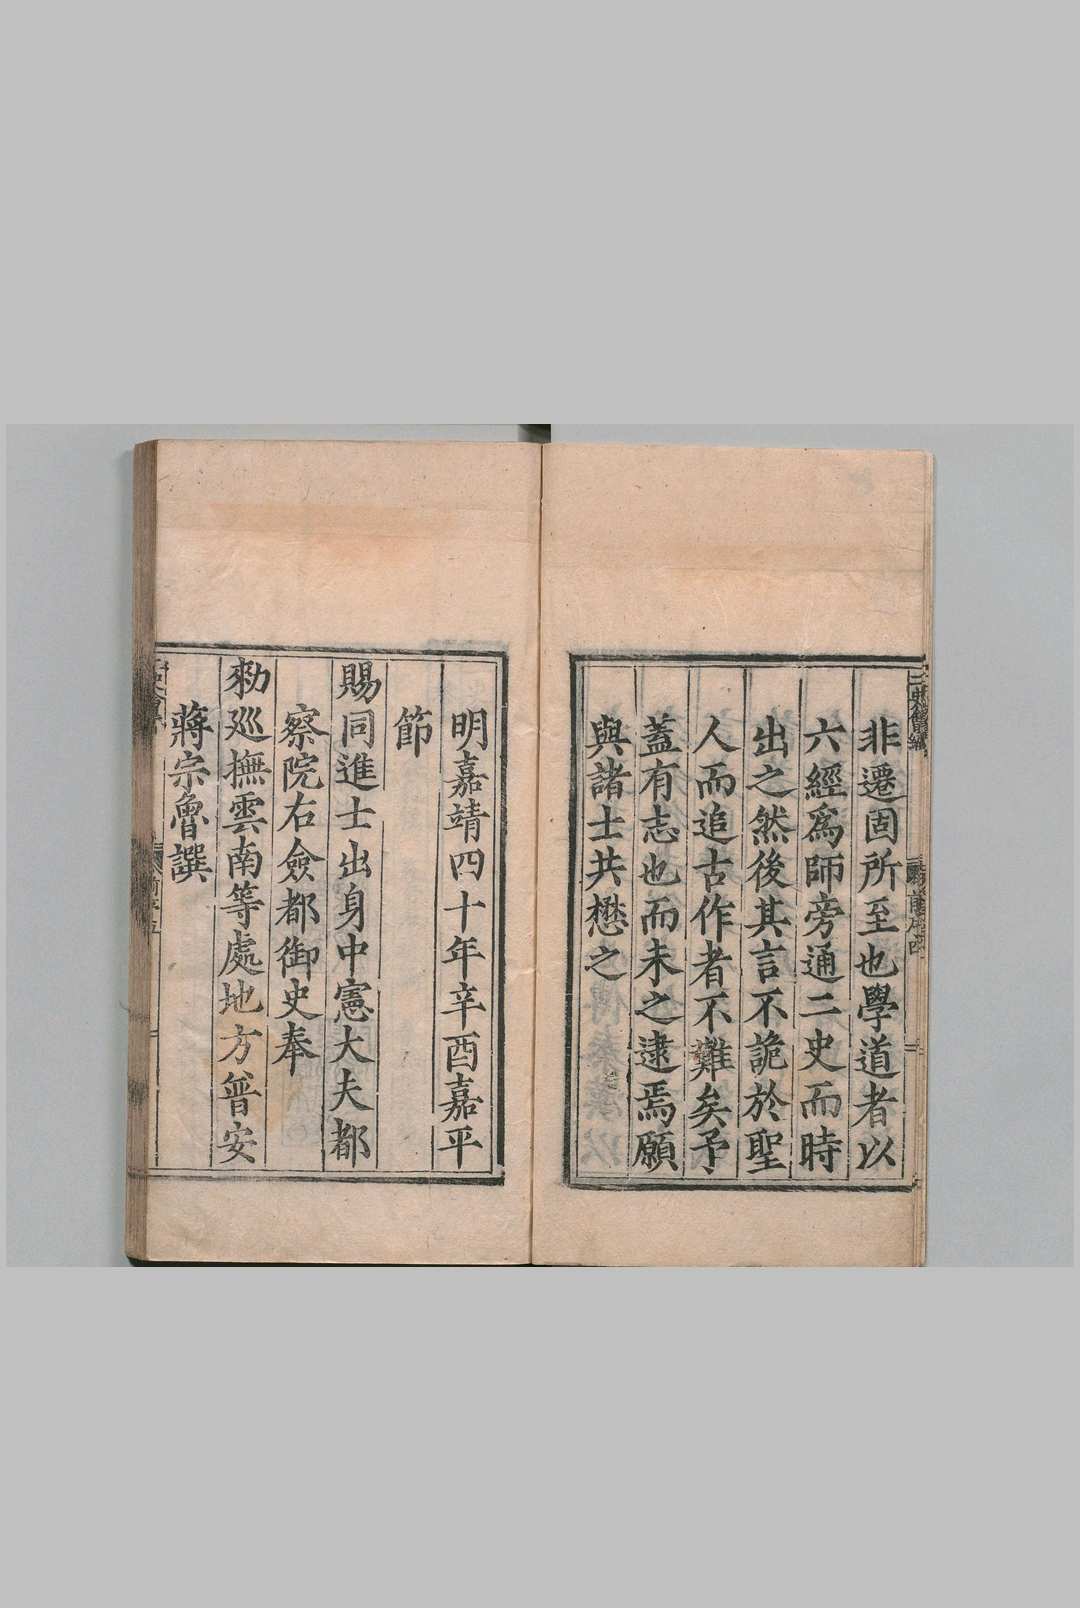 非遷固所至也學道者以
六經爲師旁通二史而時
出之然後其言不詭於聖
人而追古作者不難矣予
蓋有志也而未之逮焉願
與諸士共懋之
明嘉靖四十年辛酉嘉平
節
賜同進士出身中憲大夫都
察院右僉都御史奉
勑廵撫雲南等處地方普安
蔣宗魯譔